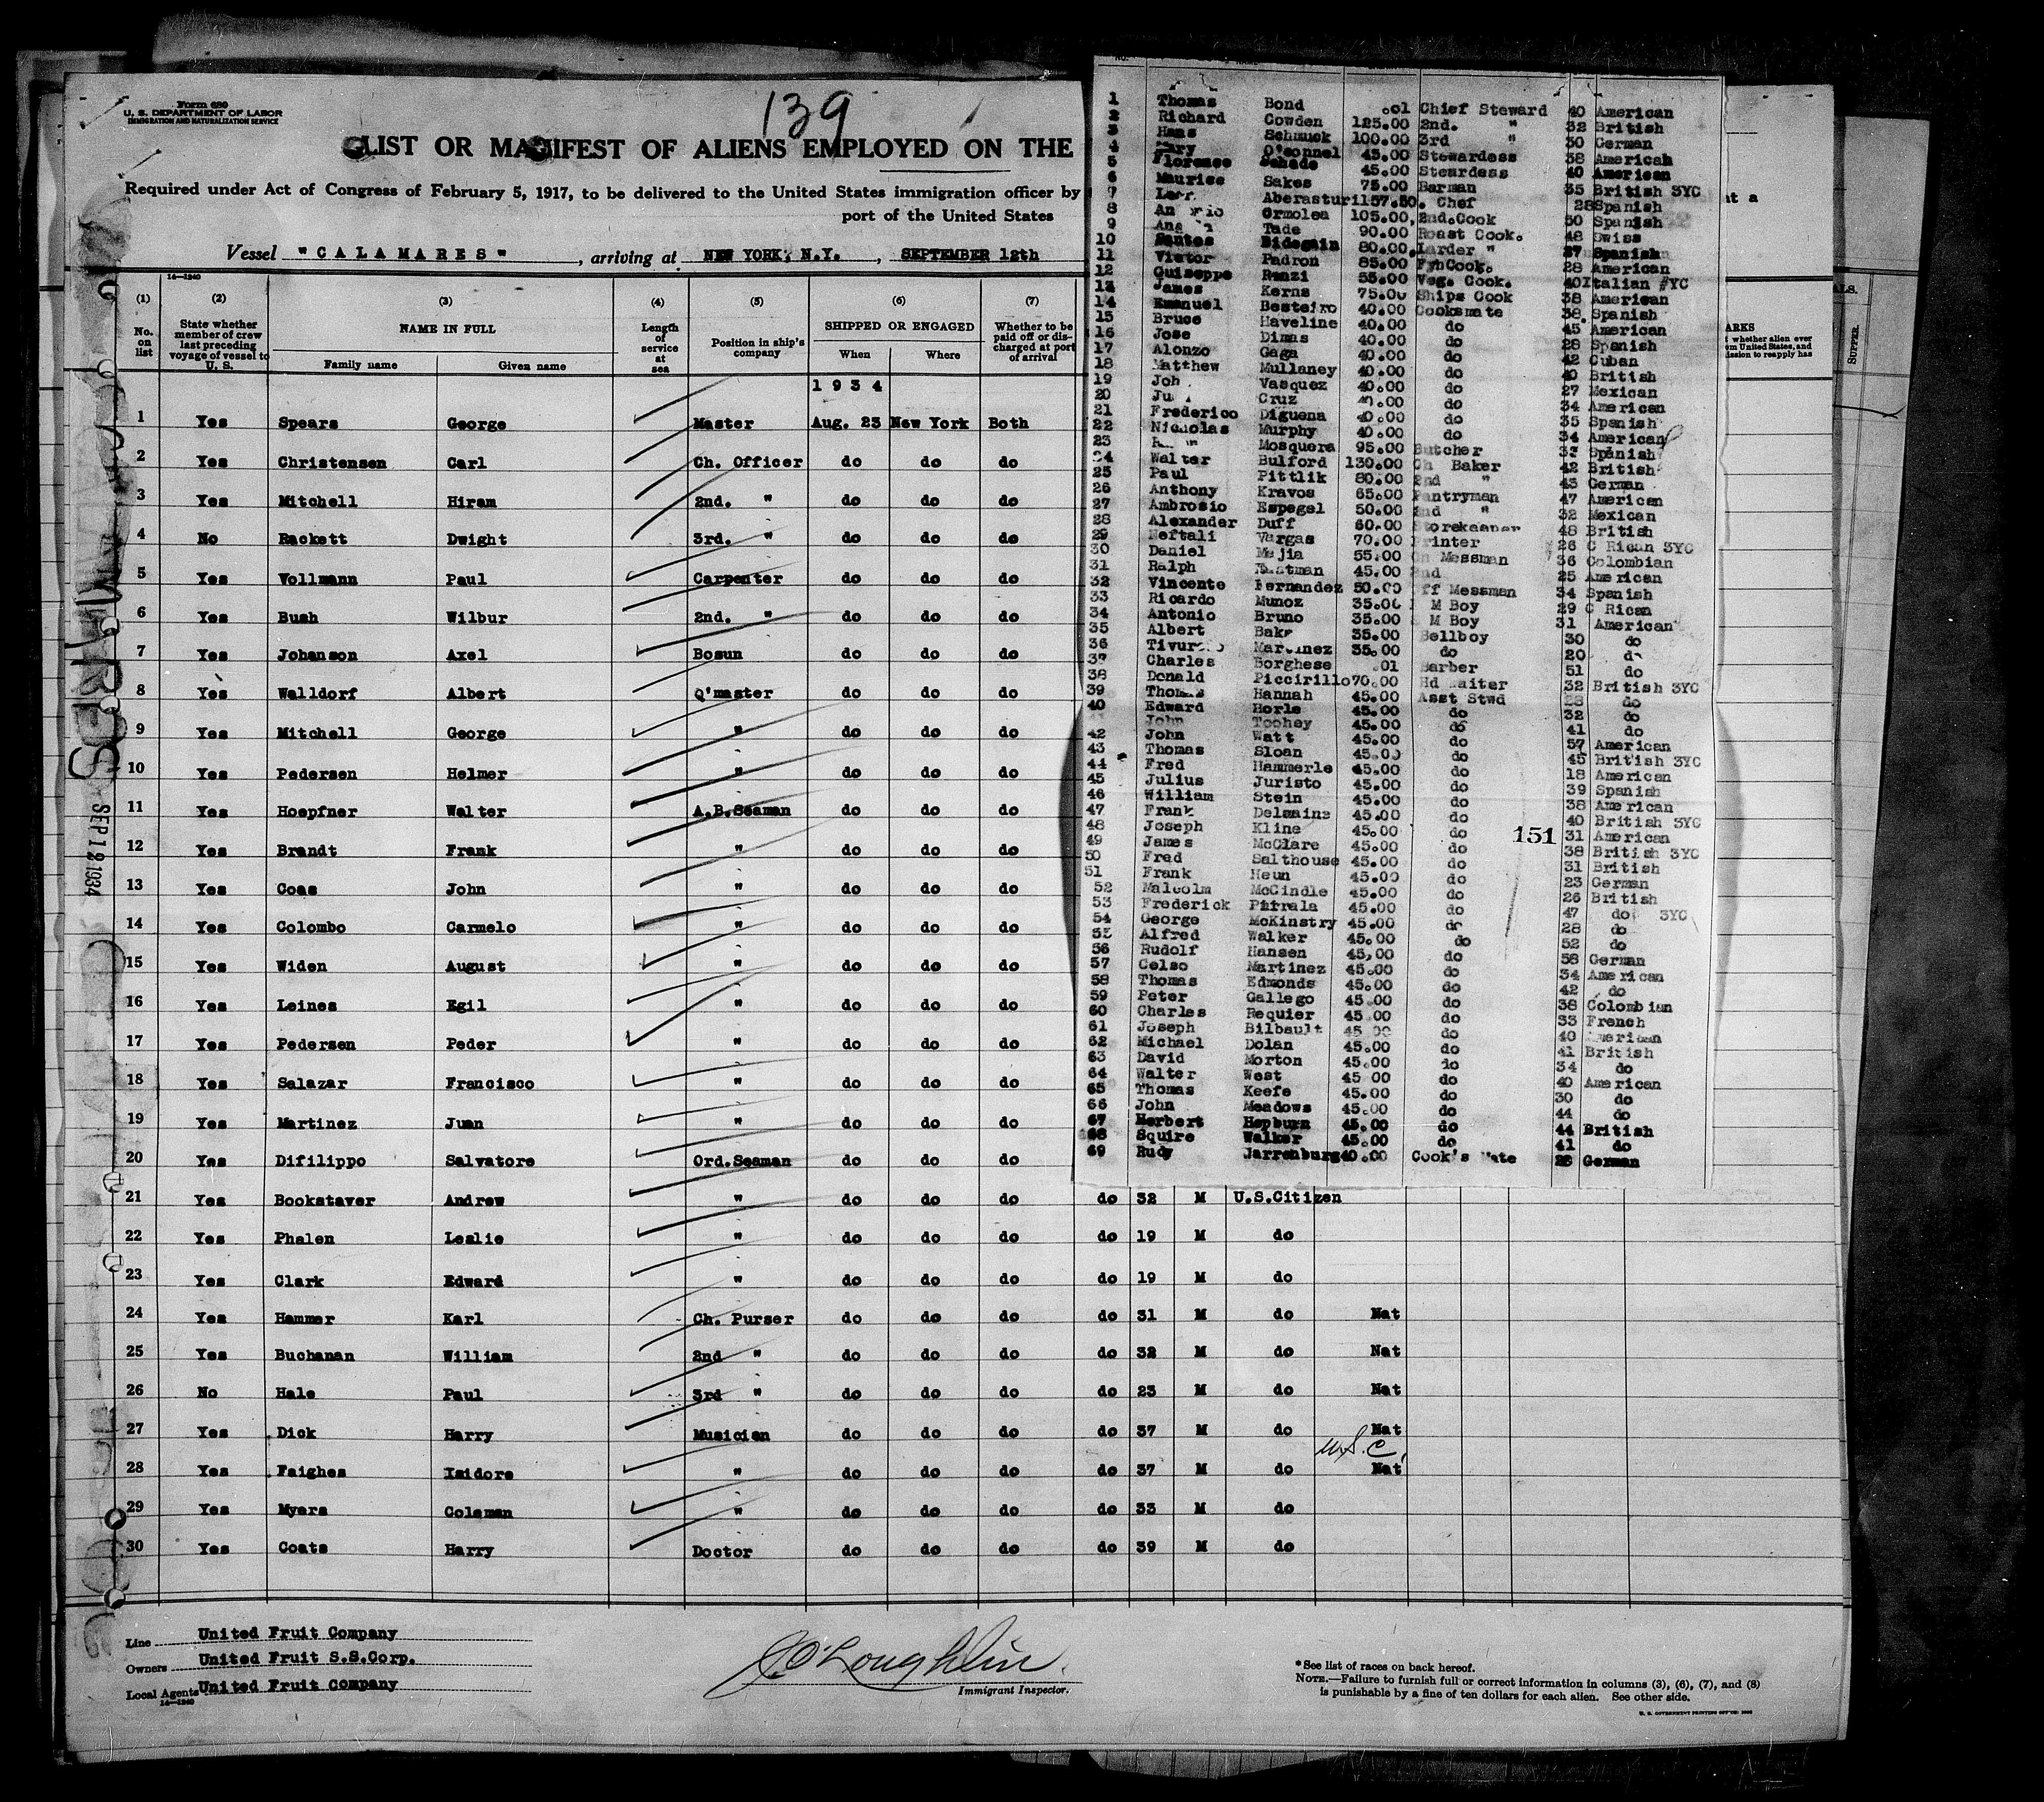 139
Form 680
U. S. DEPARTMENT OF LABOR
IMMIGRATION AND NATURALIZATION SERVICE
LIST OR MANIFEST OF ALIENS EMPLOYED ON THE
Required under Act of Congress of February 5, 1917, to be delivered to the United States immigration officer by
port of the United States
Vessel "CALAMARES", arriving at NEW YORK, N.Y., SEPTEMBER 12th
14—1240
(1) (2) (3) (4) (5) (6) (7)
No. on list State whether member of crew last preceding voyage of vessel to U. S. NAME IN FULL Family name Given name Length of service at sea Position in ship's company SHIPPED OR ENGAGED When Where Whether to be paid off or discharged at port of arrival
1934
1 Yes Spears George Master Aug. 23 New York Both
2 Yes Christensen Carl Ch. Officer do do do
3 Yes Mitchell Hiram 2nd. " do do do
4 No Rackett Dwight 3rd. " do do do
5 Yes Vollmann Paul Carpenter do do do
6 Yes Bush Wilbur 2nd. " do do do
7 Yes Johanson Axel Bosun do do do
8 Yes Walldorf Albert Q'master do do do
9 Yes Mitchell George " do do do
10 Yes Pedersen Helmer " do do do
11 Yes Hoepfner Walter A.B.Seaman do do do
12 Yes Brandt Frank " do do do
13 Yes Coas John " do do do
14 Yes Colombo Carmelo " do do do
15 Yes Widen August " do do do
16 Yes Leines Egil " do do do
17 Yes Pedersen Peder " do do do
18 Yes Salazar Francisco " do do do
19 Yes Martinez Juan " do do do
20 Yes Difilippo Salvatore Ord.Seaman do do do
21 Yes Bookstaver Andrew " do do do do 32 M U.S.Citizen
22 Yes Phalen Leslie " do do do do 19 M do
23 Yes Clark Edward " do do do do 19 M do
24 Yes Hammer Karl Ch. Purser do do do do 31 M do Nat
25 Yes Buchanan William 2nd " do do do do 32 M do Nat
26 No Hale Paul 3rd " do do do do 23 M do Nat
27 Yes Dick Harry Musician do do do do 37 M do Nat
U.S.C.
28 Yes Faighes Isidore " do do do do 37 M do Nat
29 Yes Myers Coleman " do do do do 33 M do
30 Yes Coats Harry Doctor do do do do 39 M do
Line United Fruit Company
Owners United Fruit S.S.Corp.
Local Agents United Fruit Company
14—1240
O'Loughlin
Immigrant Inspector.
*See list of races on back hereof.
NOTE.—Failure to furnish full or correct information in columns (3), (6), (7), and (8)
is punishable by a fine of ten dollars for each alien. See other side.
CALAMARES
SEP 12 1934
1 Thomas Bond .01 Chief Steward 40 American
2 Richard Cowden 125.00 2nd. " 32 British
3 Hans Schmuck 100.00 3rd " 30 German
4 Mary O'connel 45.00 Stewardess 38 American
5 Florence Schade 45.00 Steardess 40 American
6 Maurice Sakes 75.00 Barman 35 British 3YC
7 Aberasturi 157.50. Chef 28 Spanish
8 Ormolea 105.00 2nd.Cook 50 Spanish
9 Tade 90.00 Roast Cook. 48 Swiss
10 Santos Bidegain 80.00 Larder " 37 Spanish
11 Victor Padron 85.00 FyhCook. 28 American
12 Guiseppe Renzi 55.00 Veg. Cook. 40 Italian #YC
13 James Kerns 75.00 Ships Cook 38 American
14 Emanuel Besteiro 40.00 Cooksmate 38 Spanish
15 Bruce Haveline 40.00 do 45 American
16 Jose Dimas 40.00 do 28 Spanish
17 Alonzo Gaga 40.00 do 42 Cuban
18 Matthew Mullaney 40.00 do 40 British
19 Joh Vasquez 40.00 do 27 Mexican
20 Cruz 40.00 do 34 American
21 Frederico Diguena 40.00 do 35 Spanish
22 Nicholas Murphy 40.00 do 34 American
23 Mosquera 95.00 Butcher 33 Spanish
24 Walter Bulford 130.00 Ch Baker 42 British
25 Paul Pittlik 80.00 2nd " 43 German
26 Anthony Kravos 65.00 Pantryman 47 American
27 Ambrosio Espegel 50.00 2nd " 32 Mexican
28 Alexander Duff 60.00 Storekeeper 48 British
29 Neftali Vargas 70.00 Printer 26 C Rican 3YC
30 Daniel Mejia 55.00 Ch Messman 36 Colombian
31 Ralph 45.00 2nd 25 American
32 Vincente Fernandez 50.00 Off Messman 34 Spanish
33 Ricardo Munoz 35.00 M Boy 29 C Rican
34 Antonio Bruno 35.00 M Boy 31 American
35 Albert 35.00 Bellboy 30 do
36 Martinez 35.00 do 20 do
37 Charles Borghese .01 Barber 51 do
38 Donald Piccirillo 70.00 Hd Waiter 32 British 3YC
39 Thomas Hannah 45.00 Asst Stwd 28 do
40 Edward Horle 45.00 do 32 do
41 John Toohey 45.00 do 41 do
42 John Watt 45.00 do 57 American
43 Thomas Sloan 45.00 do 45 British 3YC
44 Fred Hammerle 45.00 do 18 American
45 Julius Juristo 45.00 do 39 Spanish
46 William Stein 45.00 do 38 American
47 Frank Delmaine 45.00 do 40 British 3YC
48 Joseph Kline 45.00 do 31 American
49 James McClare 45.00 do 38 British 3YC
50 Fred Salthouse 45.00 do 31 British
51 Frank Heun 45.00 do 23 German
52 Malcolm McCindle 45.00 do 26 British
53 Frederick Pirrala 45.00 do 47 do 3YC
54 George McKinstry 45.00 do 28 do
55 Alfred Walker 45.00 do 52 do
56 Rudolf Hansen 45,00 do 58 German
57 Celso Martinez 45.00 do 34 American
58 Thomas Edmonds 45.00 do 42 do
59 Peter Gallego 45.00 do 38 Colombian
60 Charles Requier 45.00 do 33 French
61 Joseph Bilbault 45.00 do 40 American
62 Michael Dolan 45.00 do 41 British
63 David Morton 45.00 do 34 do
64 Walter West 45.00 do 40 American
65 Thomas Keefe 45.00 do 30 do
66 John Meadows 45.00 do 44 do
67 Herbert Hepburn 45.00 do 44 British
68 Squire Walker 45.00 do 41 do
69 Rudy Jarrenburg 40.00 Cook's Mate 28 German
151